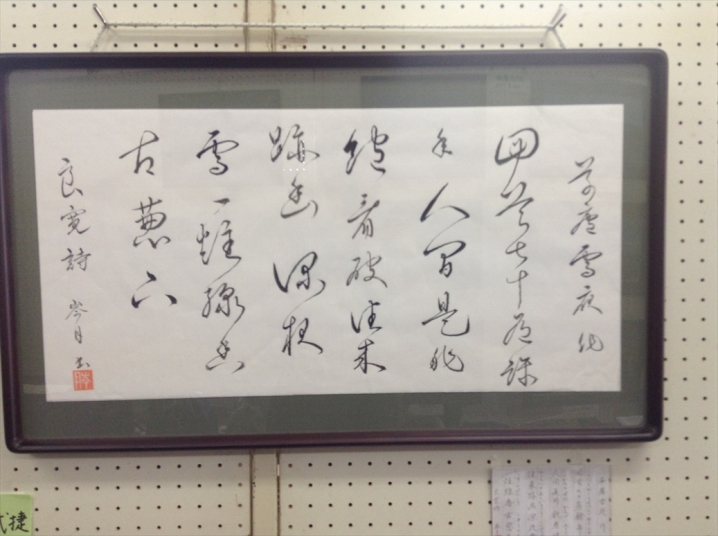 草庵雪夜作
回首七十有餘
年人間是非
飽看破往来
跡幽深夜
雪一炷線香
古窓下
良寛詩 岑月書